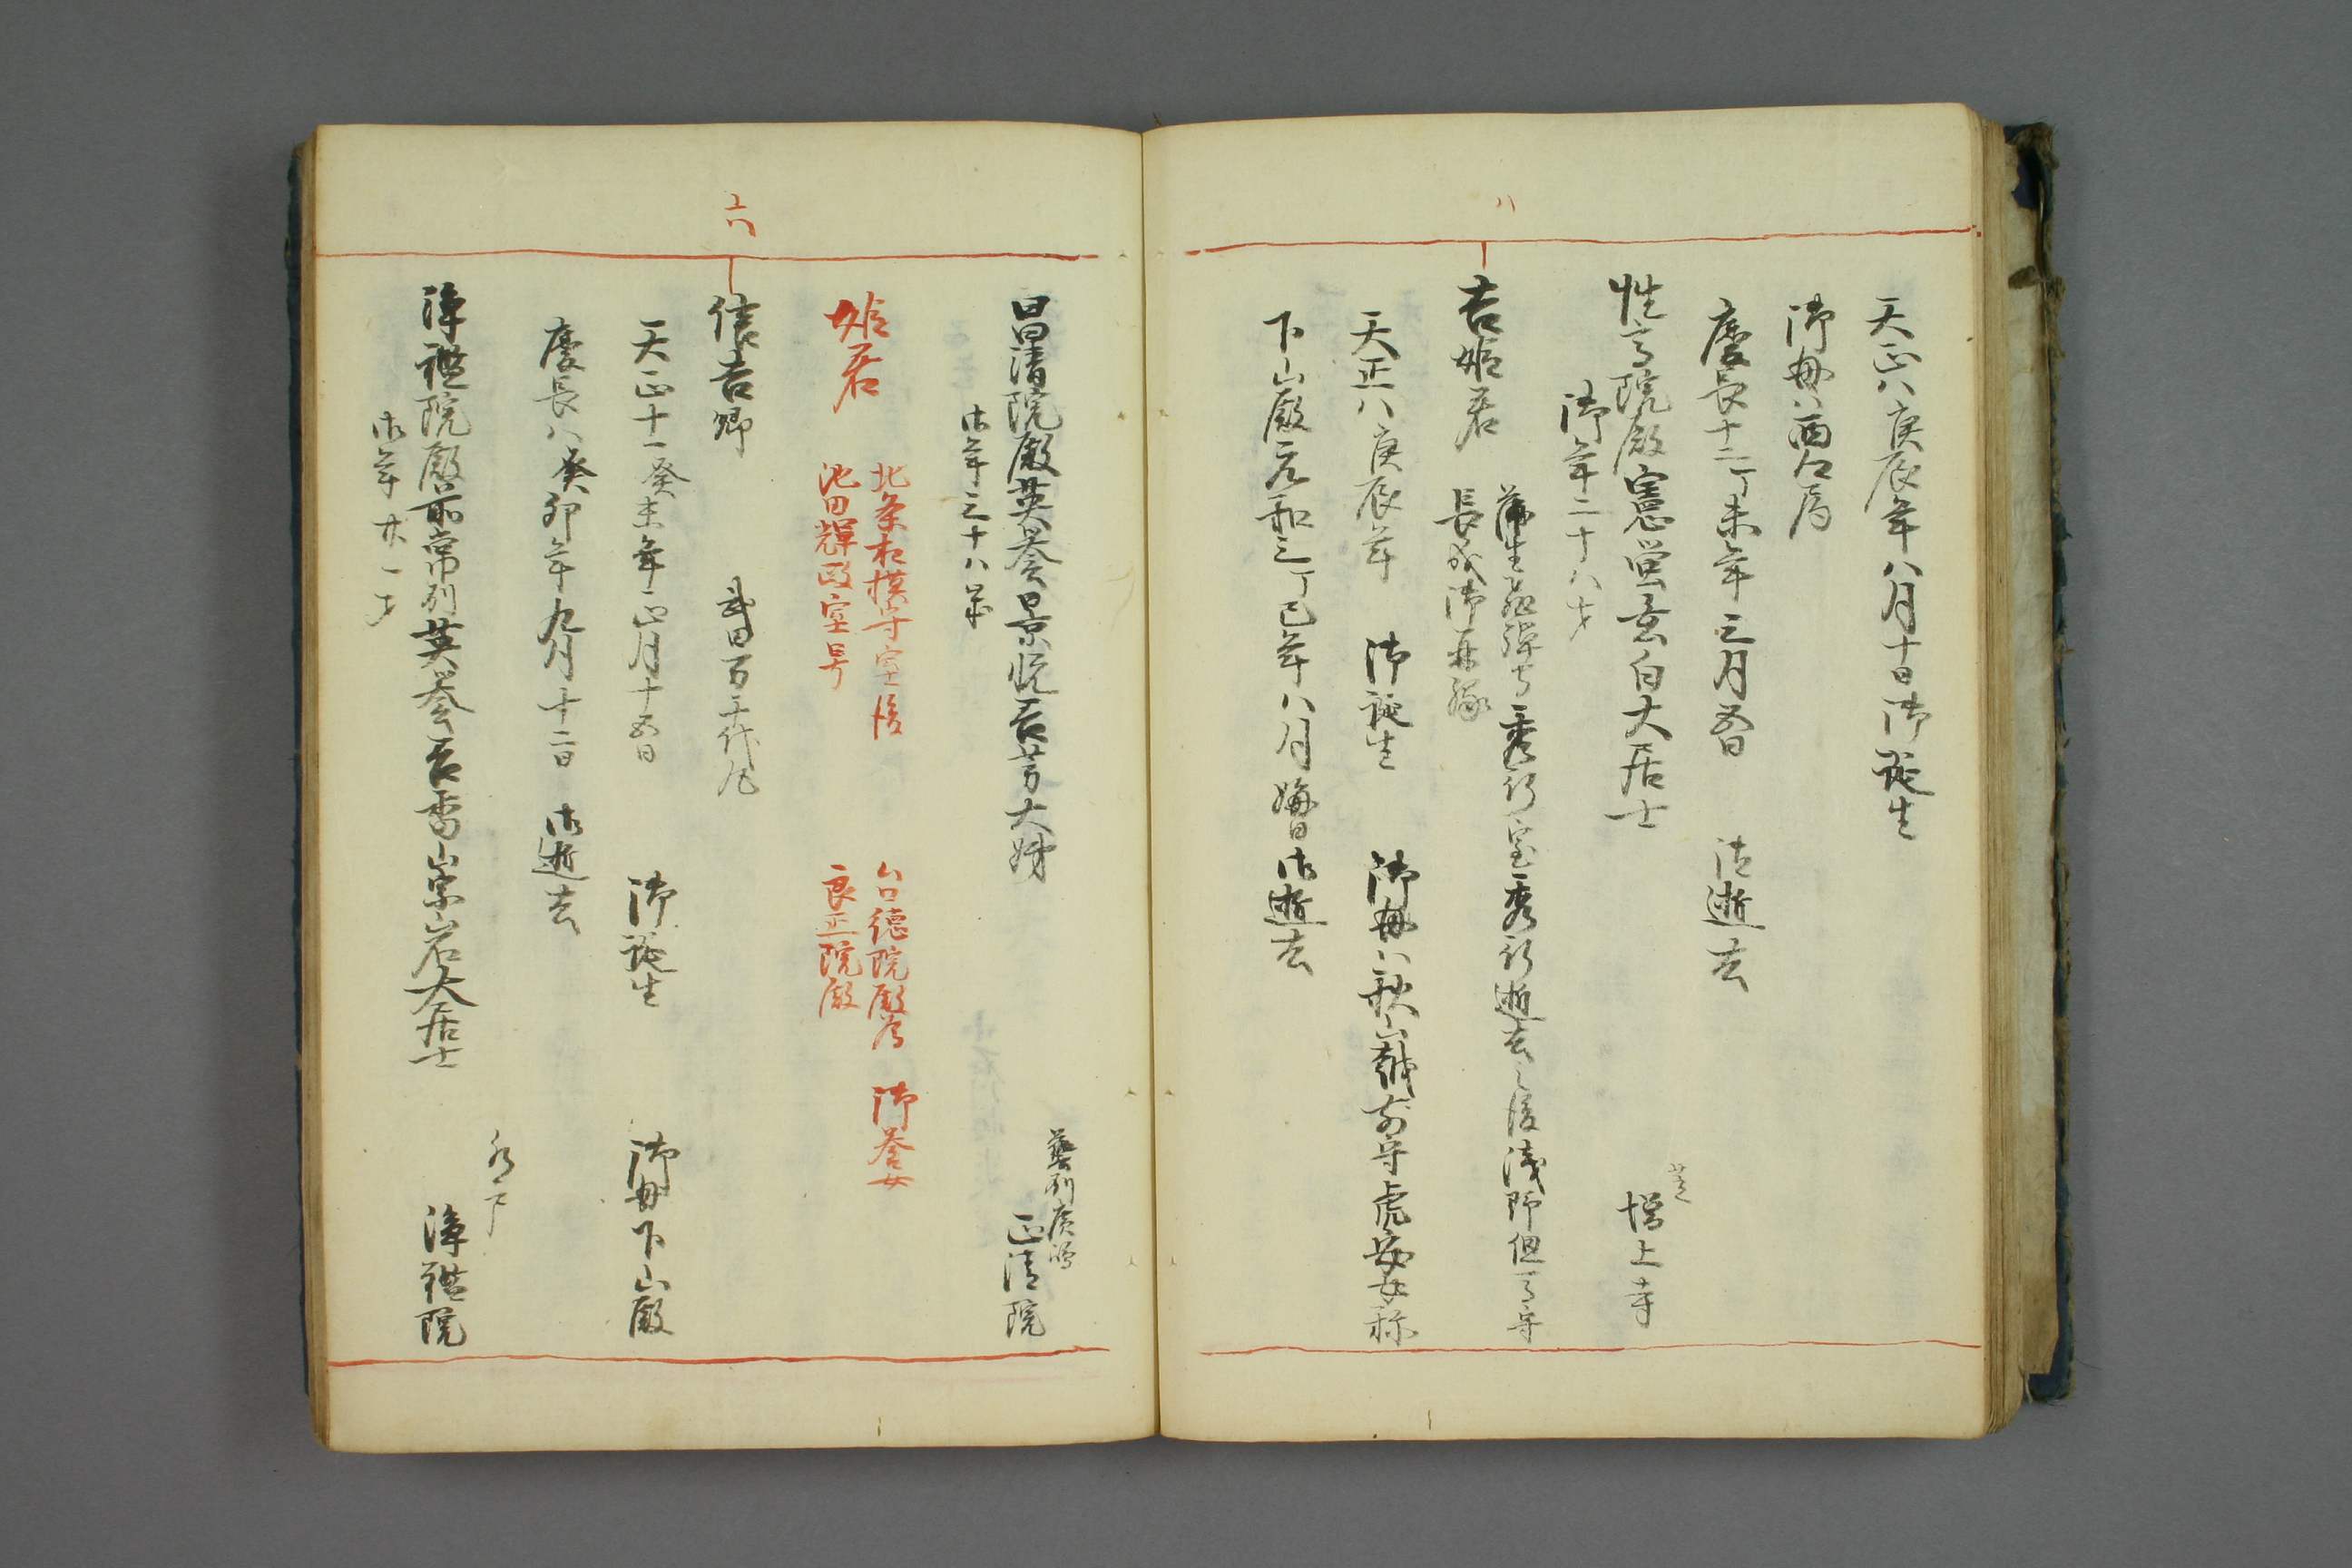 天正八庚辰年八月十日御誕生
御母ハ西江局
慶長十二丁未年三月五日　御逝去
性高院殿憲瑩玄白大居士　芝　増上寺
御年二十八才
八
古姫君　蒲生飛弾守秀行室秀行逝去之後浅野但馬守
長晟御再縁
天正八庚辰年　御誕生　御母ハ秋山越前守虎安女称
下山殿元和三丁巳年八月晦日御逝去
昌清院殿英誉景悦吾芳大姉　藝列広嶋　正清院
御年三十八才
姫君　北条相模守室後　台徳院殿為　御養女
池田輝政室号　良正院殿
六
信吉卿　武田万千代丸
天正十一癸未年正月十五日　御誕生　御母下山殿
慶長八癸卯年九月十二日　御逝去
浄鑑院殿前常列英誉吾香崇岩大居士　水戸　浄鑑院
御年廿一才